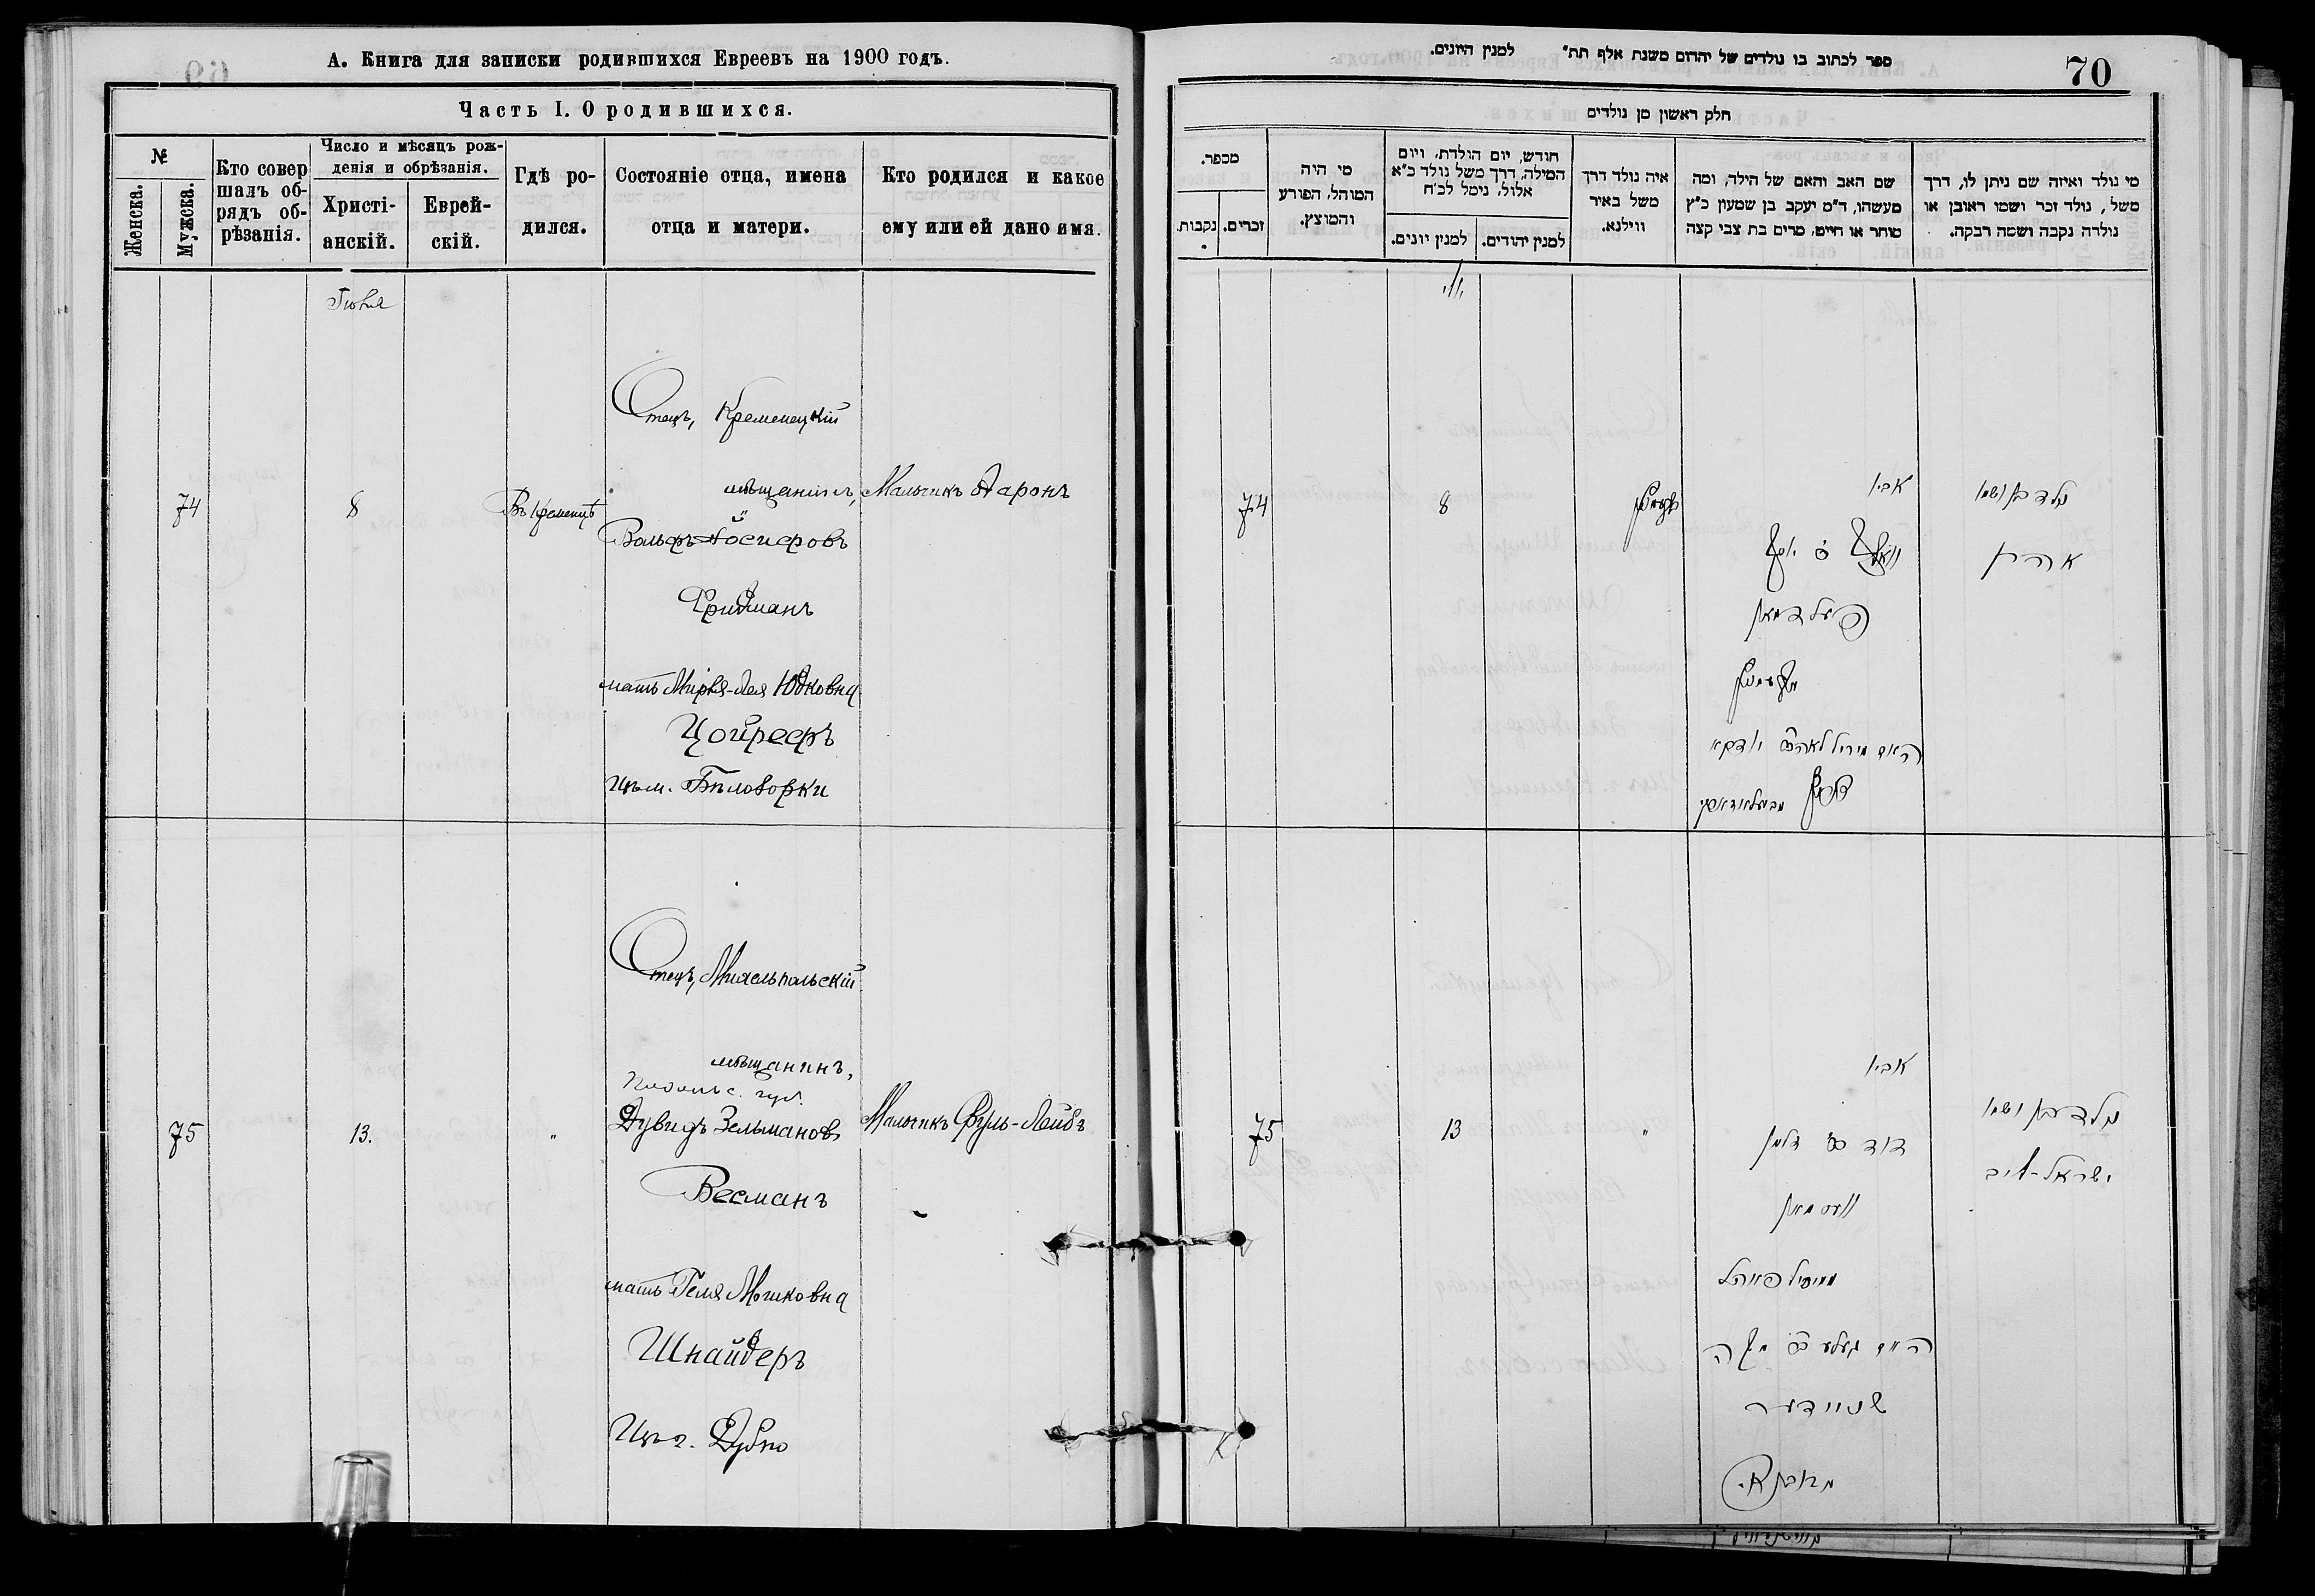 А. Книга для записки родившихся Евреевъ на 1900 годъ.
Часть I. О родившихся.
№
Женска.
Мужска.
Кто совер
шалъ об-
рядъ об-
рѣзанія.
Число и мѣсяцъ рож-
денія и обрѣзанія.
Христі-
анскій.
Еврей-
скій.
Гдѣ ро-
дился.
Состояніе отца, имена
отца и матери.
Кто родился и какое
ему или ей дано имя.
74
8
Въ Кременцѣ
Отецъ, Кременецкій
мѣщанинъ,
Вольфъ Іосифовъ
Фридманъ
мать Мирля-Лея Юдковна
Цойрефъ
изъ м. Бѣловорки
Мальчикъ Ааронъ
75
13.
"
Отецъ,
мѣщанинъ,
Подольс. губ.
Дувидъ Зельмановъ
Весманъ
мать Геля Мошковна
Шнайдеръ
Изъ г. Дубно
Мальчикъ Сруль-Лейбъ
ספר לכתוב בו נולדים של יהדום משנת אלף תת" למנין היונים.
70
חלק ראשון מן נולדים
מספר.
זכרים.
נקבות.
מי היה
המוהל, הפורע
והמוצץ.
חודש, יום הולדת, ויום
המילה, דרך משל נולד כ"א
אלול, נימל לכ"ח
למנין יונים.
למנין יהודים.
איה נולד דרך
משל באיר
ווילנא.
שם האב והאם של הילד, ומה
מעשהו, ד"מ יעקב בן שמעון כ"ץ
סוחר או חייט, מרים בת צבי קצה
מי נולד ואיזה שם ניתן לו, דרך
משל, נולד זכר ושמו ראובן או
נולדה נקבה ושמה רבקה.
74
8
אביו
נולד בן ושמו
אהרן
75
13
"
אביו
דוד ב"ר זלמן
וועסמאן
שניידער
נולד בן ושמו
ישראל-ליב